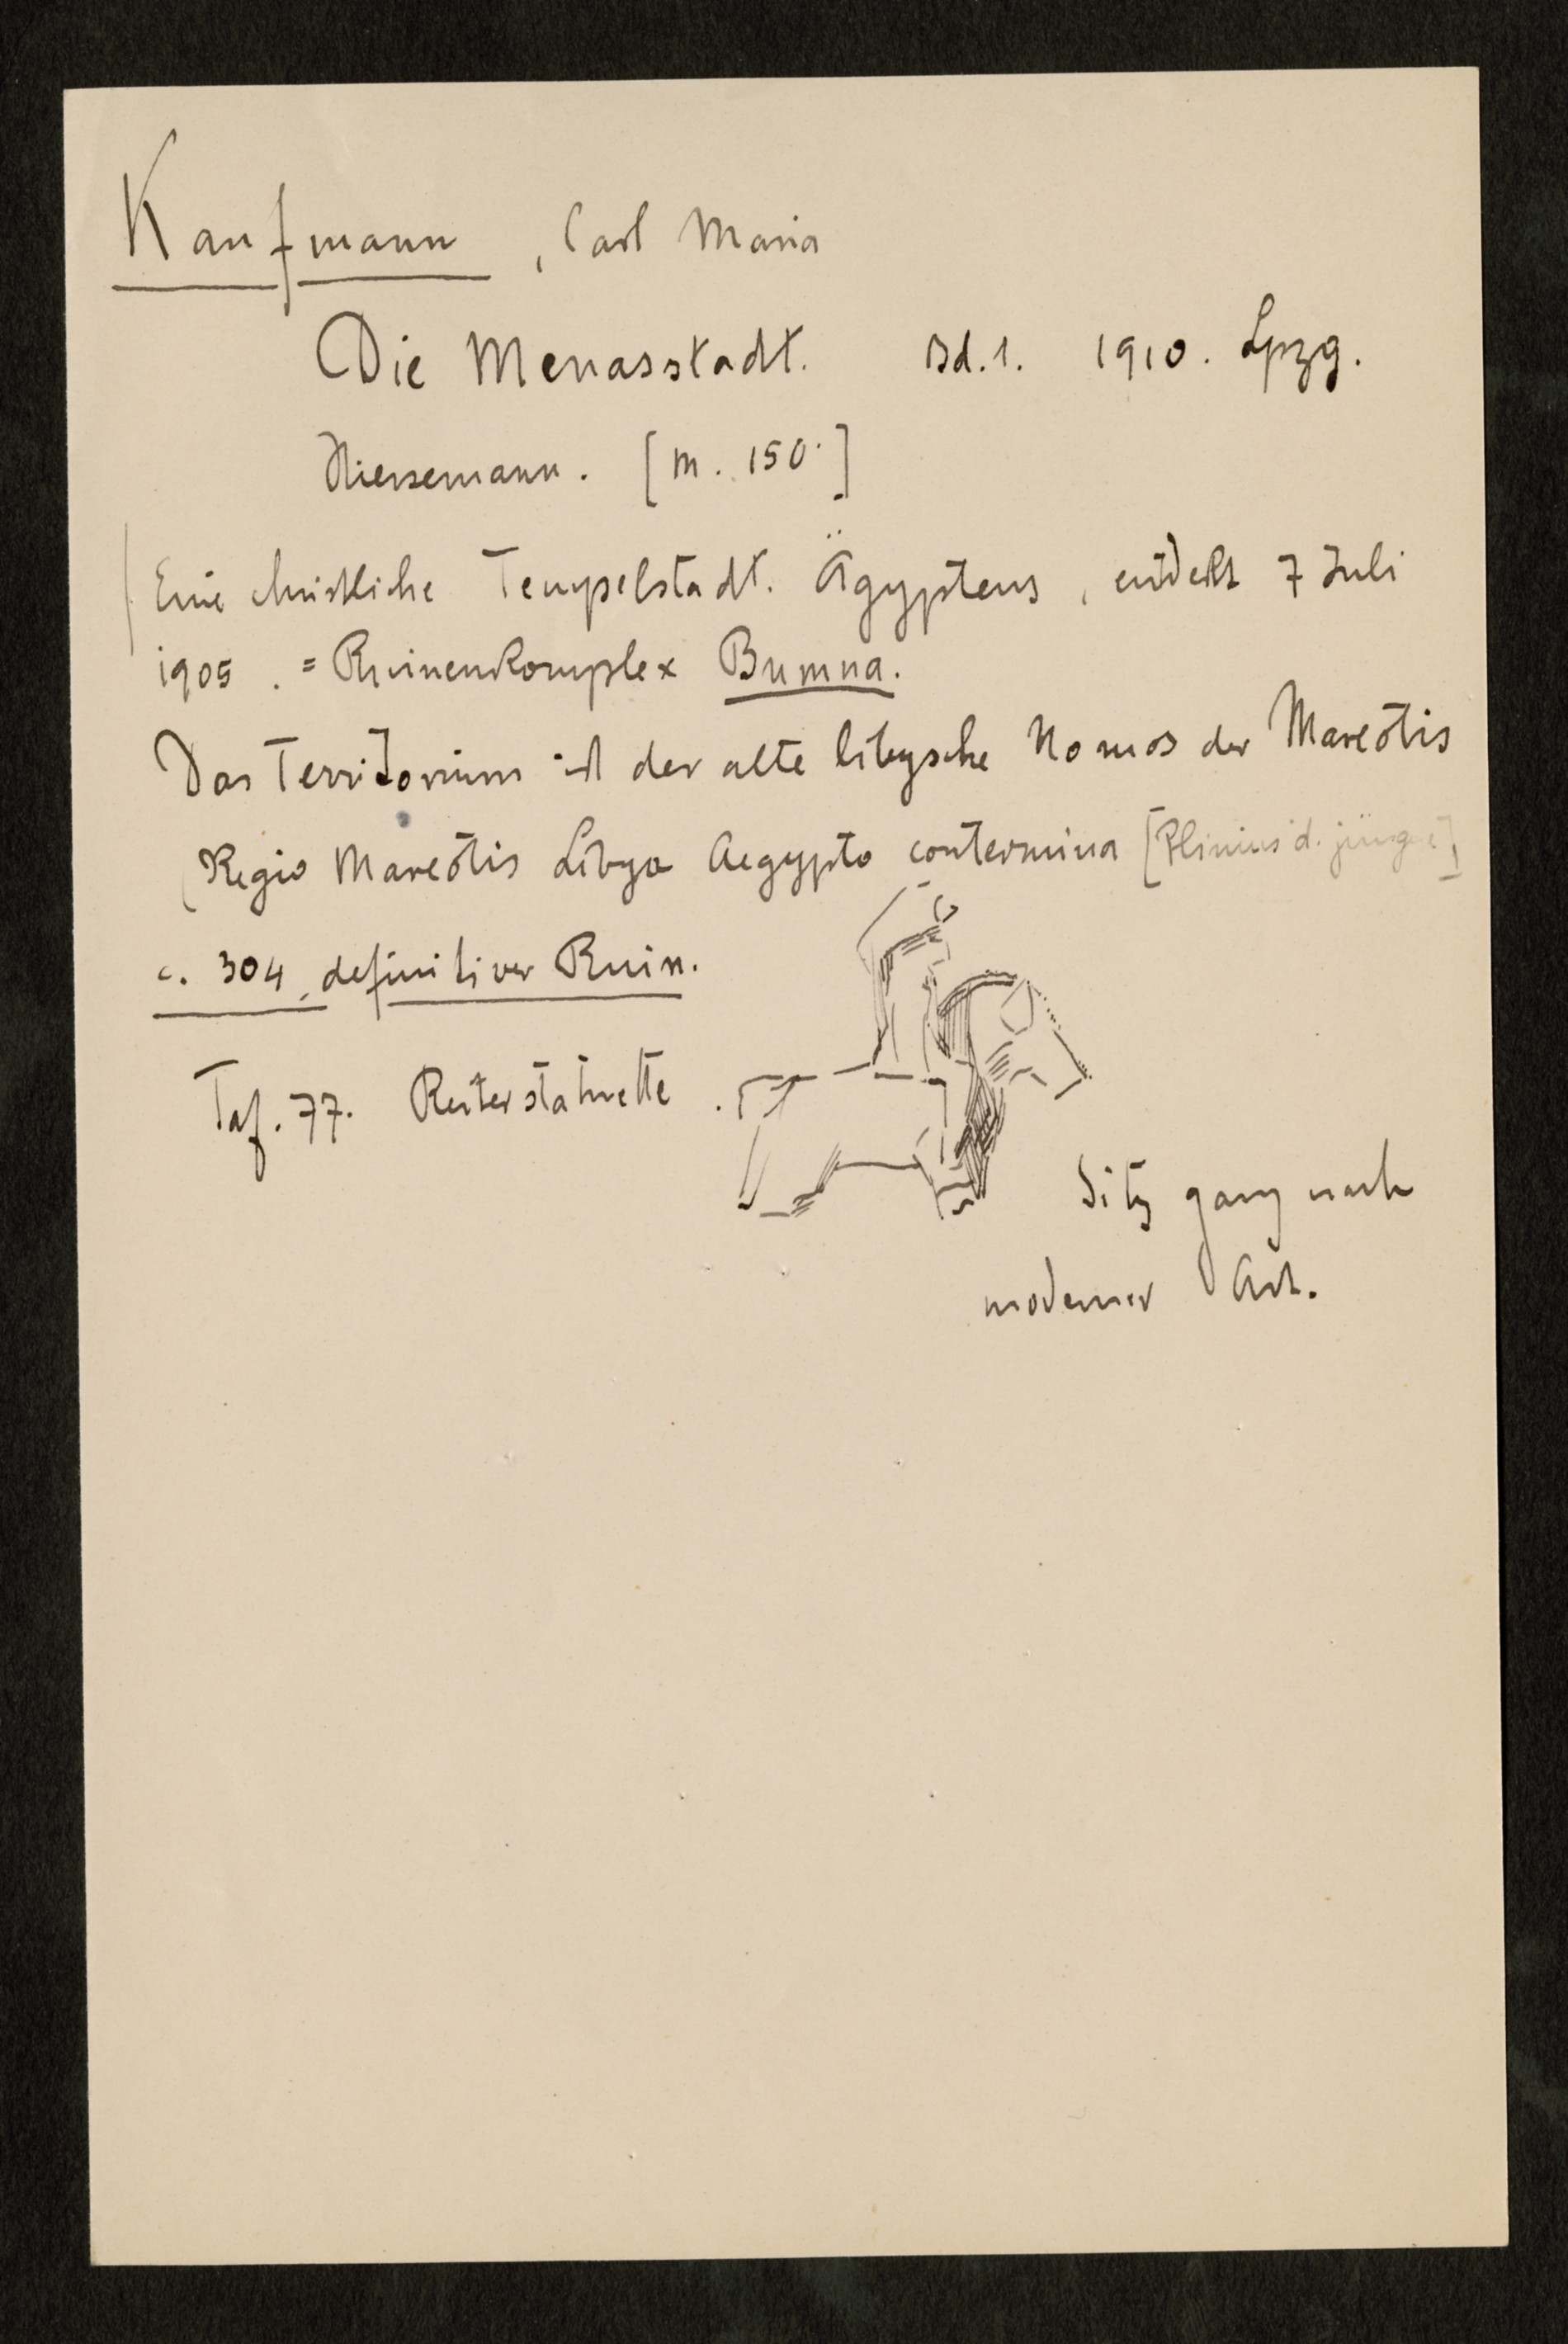 Kaufmann, Carl Maria
Die Menasstadt. Bd. 1. 1910. Lpzg.
Hiersemann. [M. 150.]
Eine christliche Tempelstadt. Ägyptens, entdeckt 7 Juli
1905. = Ruinenkomplex Bumna.
Das Territorium ist der alte libysche Nomos der Mareotis
(Regio Mareotis Libya Aegypto contermina [Plinius d. jüngre]
c. 304, definitiver Ruin.
Taf. 77. Reiterstatuette.
Sitz ganz nach
moderner Art.